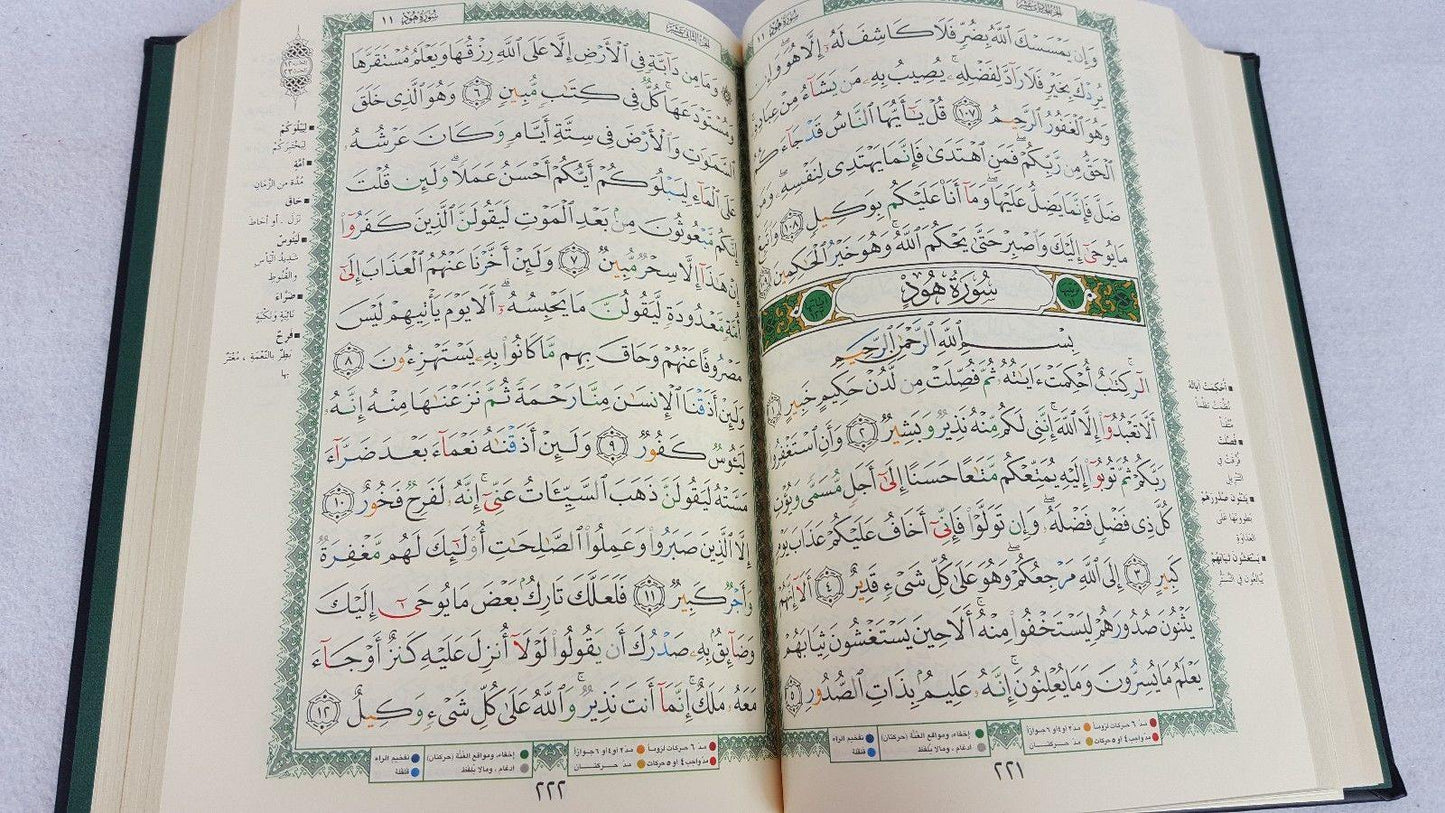 سُورَةُ هُودٍ ١١
وَإِن يَمْسَسْكَ ٱللَّهُ بِضُرٍّ فَلَا كَاشِفَ لَهُۥٓ إِلَّا هُوَ وَإِن
يُرِدْكَ بِخَيْرٍ فَلَا رَآدَّ لِفَضْلِهِۦ يُصِيبُ بِهِۦ مَن يَشَآءُ مِنْ عِبَادِهِۦ
وَهُوَ ٱلْغَفُورُ ٱلرَّحِيمُ ١٠٧ قُلْ يَٰٓأَيُّهَا ٱلنَّاسُ قَدْ جَآءَكُمُ
ٱلْحَقُّ مِن رَّبِّكُمْ فَمَنِ ٱهْتَدَىٰ فَإِنَّمَا يَهْتَدِى لِنَفْسِهِۦ وَمَن
ضَلَّ فَإِنَّمَا يَضِلُّ عَلَيْهَا وَمَآ أَنَا۠ عَلَيْكُم بِوَكِيلٍ ١٠٨ وَٱتَّبِعْ
مَا يُوحَىٰٓ إِلَيْكَ وَٱصْبِرْ حَتَّىٰ يَحْكُمَ ٱللَّهُ وَهُوَ خَيْرُ ٱلْحَٰكِمِينَ ١٠٩
سُورَةُ هُودٍ
بِسْمِ ٱللَّهِ ٱلرَّحْمَٰنِ ٱلرَّحِيمِ
الٓر كِتَٰبٌ أُحْكِمَتْ ءَايَٰتُهُۥ ثُمَّ فُصِّلَتْ مِن لَّدُنْ حَكِيمٍ خَبِيرٍ ١
أَلَّا تَعْبُدُوٓا۟ إِلَّا ٱللَّهَ إِنَّنِى لَكُم مِّنْهُ نَذِيرٌ وَبَشِيرٌ ٢ وَأَنِ ٱسْتَغْفِرُوا۟
رَبَّكُمْ ثُمَّ تُوبُوٓا۟ إِلَيْهِ يُمَتِّعْكُم مَّتَٰعًا حَسَنًا إِلَىٰٓ أَجَلٍ مُّسَمًّى وَيُؤْتِ
كُلَّ ذِى فَضْلٍ فَضْلَهُۥ وَإِن تَوَلَّوْا۟ فَإِنِّىٓ أَخَافُ عَلَيْكُمْ عَذَابَ يَوْمٍ
كَبِيرٍ ٣ إِلَى ٱللَّهِ مَرْجِعُكُمْ وَهُوَ عَلَىٰ كُلِّ شَىْءٍ قَدِيرٌ ٤ أَلَآ إِنَّهُمْ
يَثْنُونَ صُدُورَهُمْ لِيَسْتَخْفُوا۟ مِنْهُ أَلَا حِينَ يَسْتَغْشُونَ ثِيَابَهُمْ
يَعْلَمُ مَا يُسِرُّونَ وَمَا يُعْلِنُونَ إِنَّهُۥ عَلِيمٌۢ بِذَاتِ ٱلصُّدُورِ ٥
■ أُحْكِمَتْ آيَاتُهُ
نُظِّمَتْ نَظْماً
■ فُصِّلَتْ
فُرِّقَتْ فِي
التَّنْزِيلِ
■ يَثْنُونَ صُدُورَهُمْ
يَطْوُونَهَا عَلَى
العَدَاوَةِ
■ يَسْتَغْشُونَ ثِيَابَهُمْ
يُبَالِغُونَ فِي التَّسَتُّرِ
مدّ ٦ حركات لزوماً مدّ ٢ أو ٤ أو ٦ جوازاً
مدّ واجب ٤ أو ٥ حركات مدّ حركتان
إخفاء، ومواقع الغُنَّة (حركتان) تفخيم الراء
ادغام، ومالا يُلفظ قلقلة
٢٢١
سُورَةُ هُودٍ ١١
وَمَا مِن دَآبَّةٍ فِى ٱلْأَرْضِ إِلَّا عَلَى ٱللَّهِ رِزْقُهَا وَيَعْلَمُ مُسْتَقَرَّهَا
وَمُسْتَوْدَعَهَا كُلٌّ فِى كِتَٰبٍ مُّبِينٍ ٦ وَهُوَ ٱلَّذِى خَلَقَ
ٱلسَّمَٰوَٰتِ وَٱلْأَرْضَ فِى سِتَّةِ أَيَّامٍ وَكَانَ عَرْشُهُۥ
عَلَى ٱلْمَآءِ لِيَبْلُوَكُمْ أَيُّكُمْ أَحْسَنُ عَمَلًا وَلَئِن قُلْتَ
إِنَّكُم مَّبْعُوثُونَ مِنۢ بَعْدِ ٱلْمَوْتِ لَيَقُولَنَّ ٱلَّذِينَ كَفَرُوٓا۟
إِنْ هَٰذَآ إِلَّا سِحْرٌ مُّبِينٌ ٧ وَلَئِنْ أَخَّرْنَا عَنْهُمُ ٱلْعَذَابَ إِلَىٰٓ
أُمَّةٍ مَّعْدُودَةٍ لَّيَقُولُنَّ مَا يَحْبِسُهُۥٓ أَلَا يَوْمَ يَأْتِيهِمْ لَيْسَ
مَصْرُوفًا عَنْهُمْ وَحَاقَ بِهِم مَّا كَانُوا۟ بِهِۦ يَسْتَهْزِءُونَ ٨
وَلَئِنْ أَذَقْنَا ٱلْإِنسَٰنَ مِنَّا رَحْمَةً ثُمَّ نَزَعْنَٰهَا مِنْهُ إِنَّهُۥ
لَيَـُٔوسٌ كَفُورٌ ٩ وَلَئِنْ أَذَقْنَٰهُ نَعْمَآءَ بَعْدَ ضَرَّآءَ
مَسَّتْهُ لَيَقُولَنَّ ذَهَبَ ٱلسَّيِّـَٔاتُ عَنِّىٓ إِنَّهُۥ لَفَرِحٌ فَخُورٌ ١٠
إِلَّا ٱلَّذِينَ صَبَرُوا۟ وَعَمِلُوا۟ ٱلصَّٰلِحَٰتِ أُو۟لَٰٓئِكَ لَهُم مَّغْفِرَةٌ
وَأَجْرٌ كَبِيرٌ ١١ فَلَعَلَّكَ تَارِكٌۢ بَعْضَ مَا يُوحَىٰٓ إِلَيْكَ
وَضَآئِقٌۢ بِهِۦ صَدْرُكَ أَن يَقُولُوا۟ لَوْلَآ أُنزِلَ عَلَيْهِ كَنزٌ أَوْ جَآءَ
مَعَهُۥ مَلَكٌ إِنَّمَآ أَنتَ نَذِيرٌ وَٱللَّهُ عَلَىٰ كُلِّ شَىْءٍ وَكِيلٌ ١٢
■ لِيَبْلُوَكُمْ
لِيَخْتَبِرَكُمْ
■ أُمَّةٍ
مُدَّةٍ مِنَ الزَّمَانِ
■ حَاقَ
نَزَلَ، أو أحَاطَ
■ لَيَئُوسٌ
شَدِيدُ اليَأْسِ
والقُنُوطِ
■ ضَرَّاءَ
نَائِبَةٍ وَنَكْبَةٍ
■ فَرِحٌ
بَطِرٌ بالنِّعْمَةِ، مُغْتَرٌّ
بها
مدّ ٦ حركات لزوماً مدّ ٢ أو ٤ أو ٦ جوازاً
مدّ واجب ٤ أو ٥ حركات مدّ حركتان
إخفاء، ومواقع الغُنَّة (حركتان) تفخيم الراء
ادغام، ومالا يُلفظ قلقلة
٢٢٢